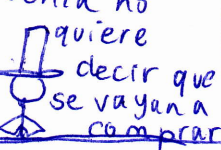 no
quiere
decir que
se vayan a
comprar